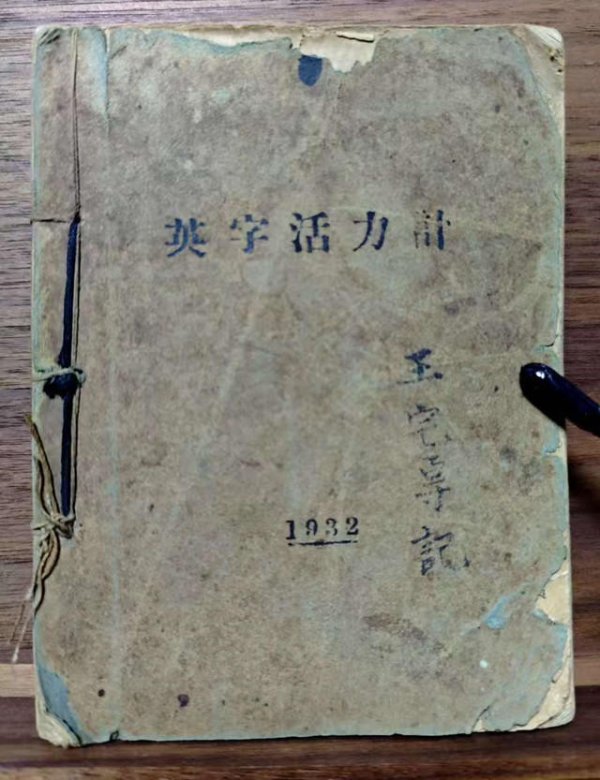 英字活力計
王記
1932